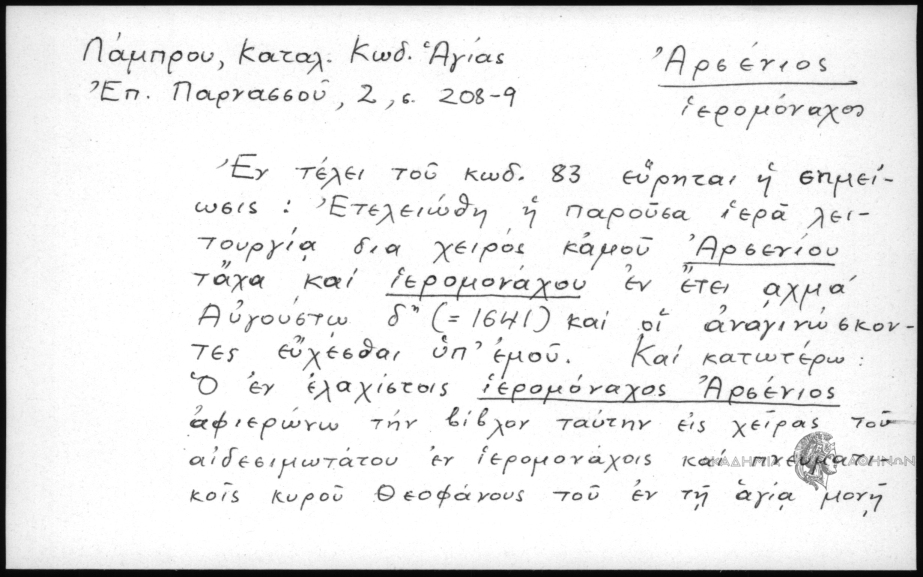 Λάμπρου, Καταλ. Κωδ. Ἁγίας
Ἐπ. Παρνασσοῦ, 2, σ. 208-9
Ἀρσένιος
ἱερομόναχος
Ἐν τέλει τοῦ κωδ. 83 εὕρηται ἡ σημεί-
ωσις : Ἐτελειώθη ἡ παροῦσα ἱερὰ λει-
τουργία δια χειρός κἀμοῦ Ἀρσενίου
τἄχα καί ἱερομονάχου ἐν ἔτει αχμα
Αὐγούστω δῃ (= 1641) καί οἱ ἀναγινώσκον-
τες εὔχέσθαι ὑπ' ἐμοῦ. Καί κατωτέρω :
Ὁ ἐν ἐλαχίστοις ἱερομόναχος Ἀρσένιος
ἀφιερώνω τήν βίβλον ταύτην εἰς χεῖρας τοῦ
αἰδεσιμωτάτου ἐν ἱερομονάχοις καί πνευματι-
κοῖς κυροῦ Θεοφάνους τοῦ ἐν τῇ ἁγίᾳ μονῇ
ΑΚΑΔΗΜΙΑ ΑΘΗΝΩΝ